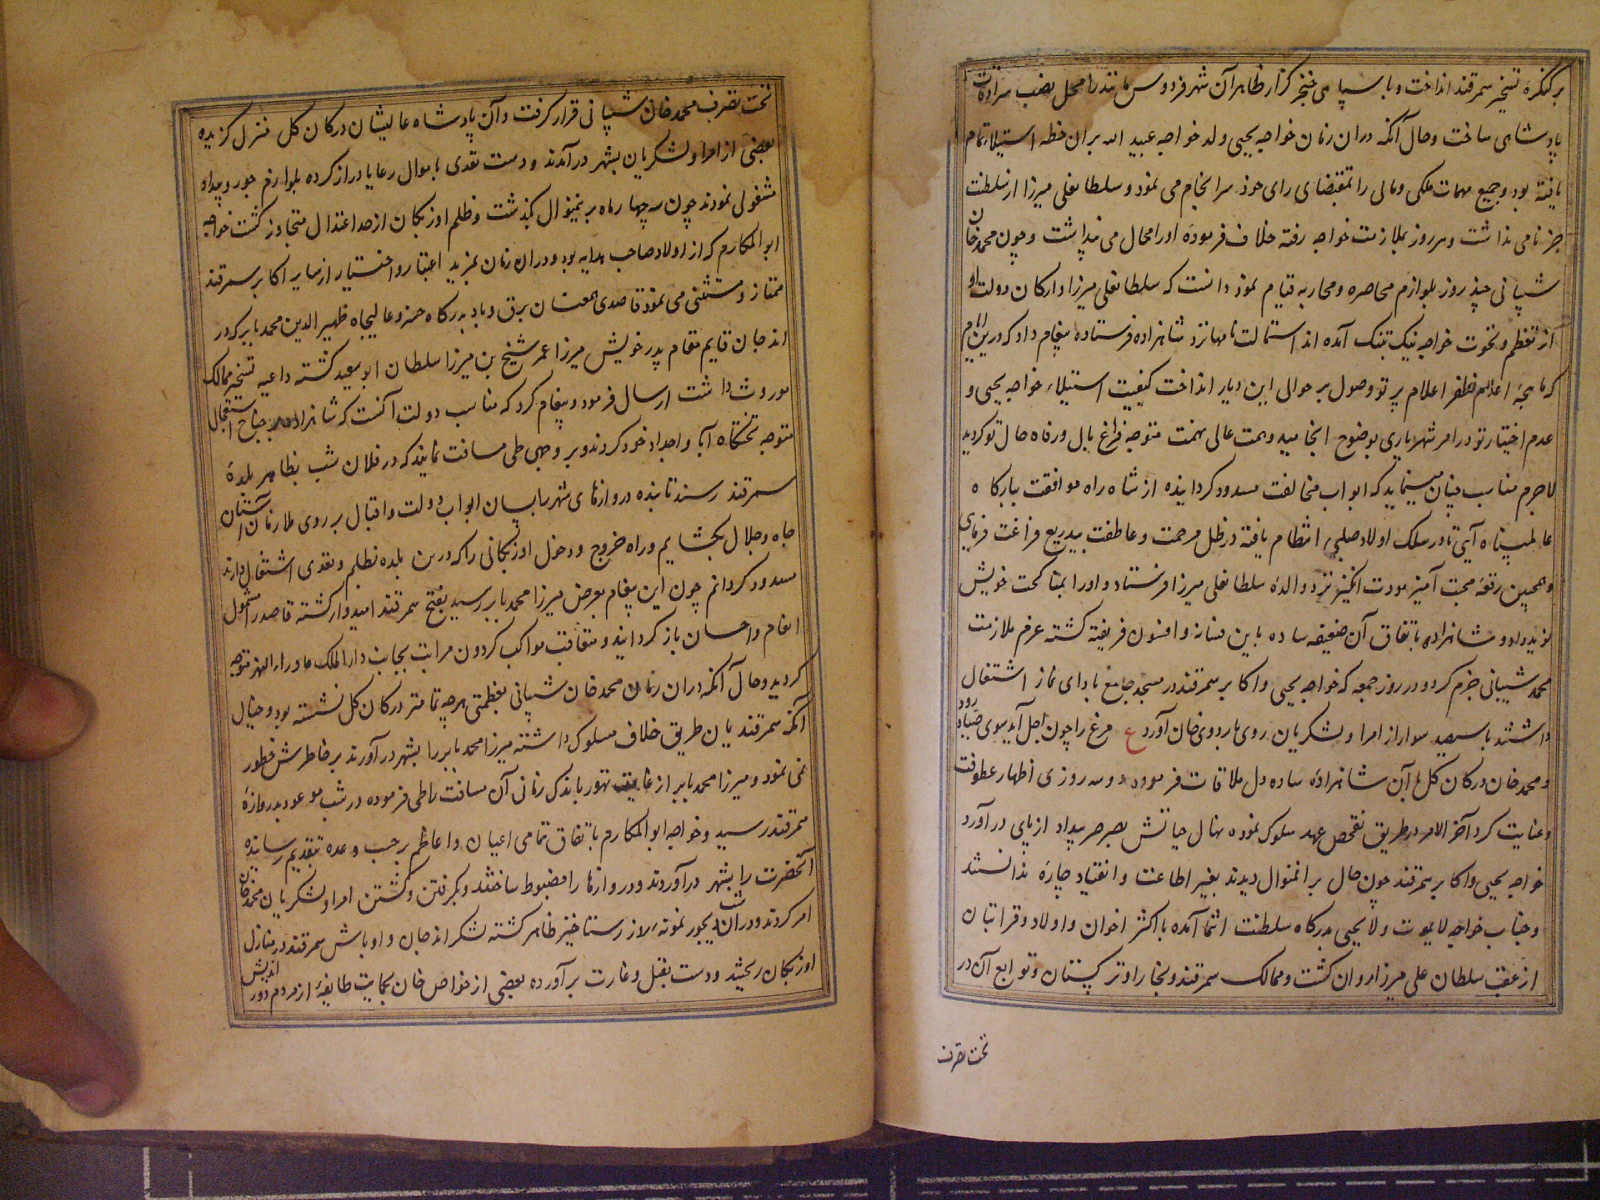 بر کنکره تسخیر سمرقند انداخت و با سپاهی خنجر کزار ظاهر آن شهر فردوس مانند را محل نصب سرادقات
پادشاهی ساخت و حال آنکه دران زمان خواجه یحیی ولد خواجه عبید الله بران خطه استیلاء تمام
یافته بود و جمیع مهمات ملکی و مالی را بمقتضای رای خود سرانجام می نمود و سلطانعلی میرزا از سلطنت
جز نامی نداشت و هر روز بملازمت خواجه رفته خلاف فرموده او را محال می پنداشت و چون محمد خان
شیبانی چند روز بلوازم محاصره و محاربه قیام نمود دانست که سلطانعلی میرزا و ارکان دولت او
از تعظم و نخوت خواجه نیک بتنک آمده اند استمالت نامها نزد شاهزاده فرستاده پیغام داد که درین ایام
که ماهچه اعلام ظفر اعلام پرتو وصول بر حوالی این دیار انداخت کیفیت استیلاء خواجه یحیی و
عدم اختیار تو در امر شهریاری بوضوح انجامید و همت عالی نهمت متوجه فراغ بال و رفاه حال تو کردید
لاجرم مناسب چنان مینماید که ابواب مخالفت مسدود کردانیده از شاه راه موافقت ببارکاه
عالمپناه آیی تا در سلک اولاد صلبی انتظام یافته در ظل مرحمت و عاطفت بیدریغ فراغت فرمای
و همچنین رقعه محبت آمیز مودت انکیز نزد والده سلطانعلی میرزا فرستاد و او را بمناکحت خویش
نوید داد و شاهزاده باتفاق آن ضعیفه ساده باین فسانه و افسون فریفته کشته عزم ملازمت
محمد شیبانی جزم کرد و در روز جمعه که خواجه یحیی و اکابر سمرقند در مسجد جامع بادای نماز اشتغال
داشتند با سیصد سوار از امرا و لشکریان روی باردوی خان آورد ع مرغ را چون اجل آید سوی صیاد رود
و محمد خان درکان کل با آن شاهزاده ساده دل ملاقات فرموده دو سه روزی اظهار عطوفت
و عنایت کرد آخر الامر طریق نقص عهد سلوک نموده نهال حیاتش بصرصر بیداد از پای درآورد
خواجه یحیی و اکابر سمرقند چون حال برانمنوال دیدند بغیر اطاعت و انقیاد چاره ندانستند
و جناب خواجه لایموت و لایحیی بدرکاه سلطنت انتما آمده با اکثر اخوان و اولاد و قراتبان
از عقب سلطان علی میرزا روان کشت و ممالک سمرقند و بخارا و ترکستان و توابع آن در
تحت تصرف
تحت تصرف محمد خان شیبانی قرار کرفت و آن پادشاه عالیشان درکان کل منزل کزیده
بعضی از امرا و لشکریان بشهر درآمدند و دست تعدی باموال رعایا دراز کرده بلوازم جور و بیداد
مشغولی نمودند چون سه چهار ماه برینمنوال بکذشت و ظلم اوزبکان از حد اعتدال متجاوز کشت خواجه
ابو المکارم که از اولاد صاحب هدایه بود و دران زمان بمزید اعتبار و اختیار از سایر اکابر سمرقند
ممتاز و مستثنی می نمود قاصدی همعنان برق و باد بدرکاه خسرو عالیجاه ظهیر الدین محمد بابر که در
اندجان قایم مقام پدر خویش میرزا عمر شیخ بن میرزا سلطان ابو سعید کشته داعیه تسخیر ممالک
موروث داشت ارسال فرمود و پیغام کرد که مناسب دولت آنست که شاهزاده بر جناح استعجال
متوجه تختکاه آبا و اجداد خود کردند و بر وجهی طی مسافت نمایند که در فلان شب بظاهر بلده
سمرقند رسند تا بنده دروازهای شهر بسان ابواب دولت و اقبال بر روی ملازمان آستان
جاه و جلال بکشایم و راه خروج و دخول اوزبکانی را که درین بلده بظلم و تعدی اشتغال دارند
مسدود کردانم چون این پیغام بعرض میرزا محمد بابر رسید بفتح سمرقند امیدوار کشته قاصد را مشمول
انعام و احسان باز کردانید و متعاقب مواکب کردون مراتب بجانب دار الملک ماوراء النهر متوجه
کردید و حال آنکه دران زمان محمد خان شیبانی بعظمتی هرچه تمامتر درکان کل نشسته بود و خیال
آنکه سمرقندیان طریق خلاف مسلوک داشته میرزا محمد بابر را بشهر درآورند بر خاطرش خطور
نمی نمود و میرزا محمد بابر از غایت تهور باندک زمانی آن مسافت را طی فرموده در شب موعود بدروازه
سمرقند رسید و خواجه ابو المکارم باتفاق تمامی اعیان و اعاظم برحسب وعده بتقدیم رسانیده
آنحضرت را بشهر درآوردند و دروازها را مضبوط ساختند و بکرفتن و کشتن امرا و لشکریان محمد خان
امر کردند و دران شب دیجور نمونه از روز رستاخیز ظاهر کشته لشکر اندجان و اوباش سمرقند در منازل
اوزبکان ریختند و دست بقتل و غارت برآورده بعضی از خواص خان بحمایت طایفه از مردم دور اندیش